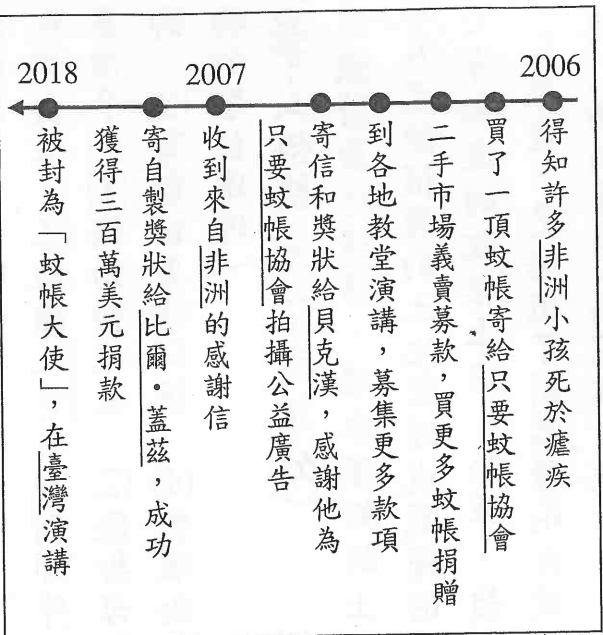 2006
得知許多非洲小孩死於瘧疾
買了一頂蚊帳寄給只要蚊帳協會
二手市場義賣募款，買更多蚊帳捐贈
到各地教堂演講，募集更多款項
寄信和獎狀給貝克漢，感謝他為
只要蚊帳協會拍攝公益廣告
2007
收到來自非洲的感謝信
寄自製獎狀給比爾・蓋茲，成功
獲得三百萬美元捐款
2018
被封為「蚊帳大使」，在臺灣演講